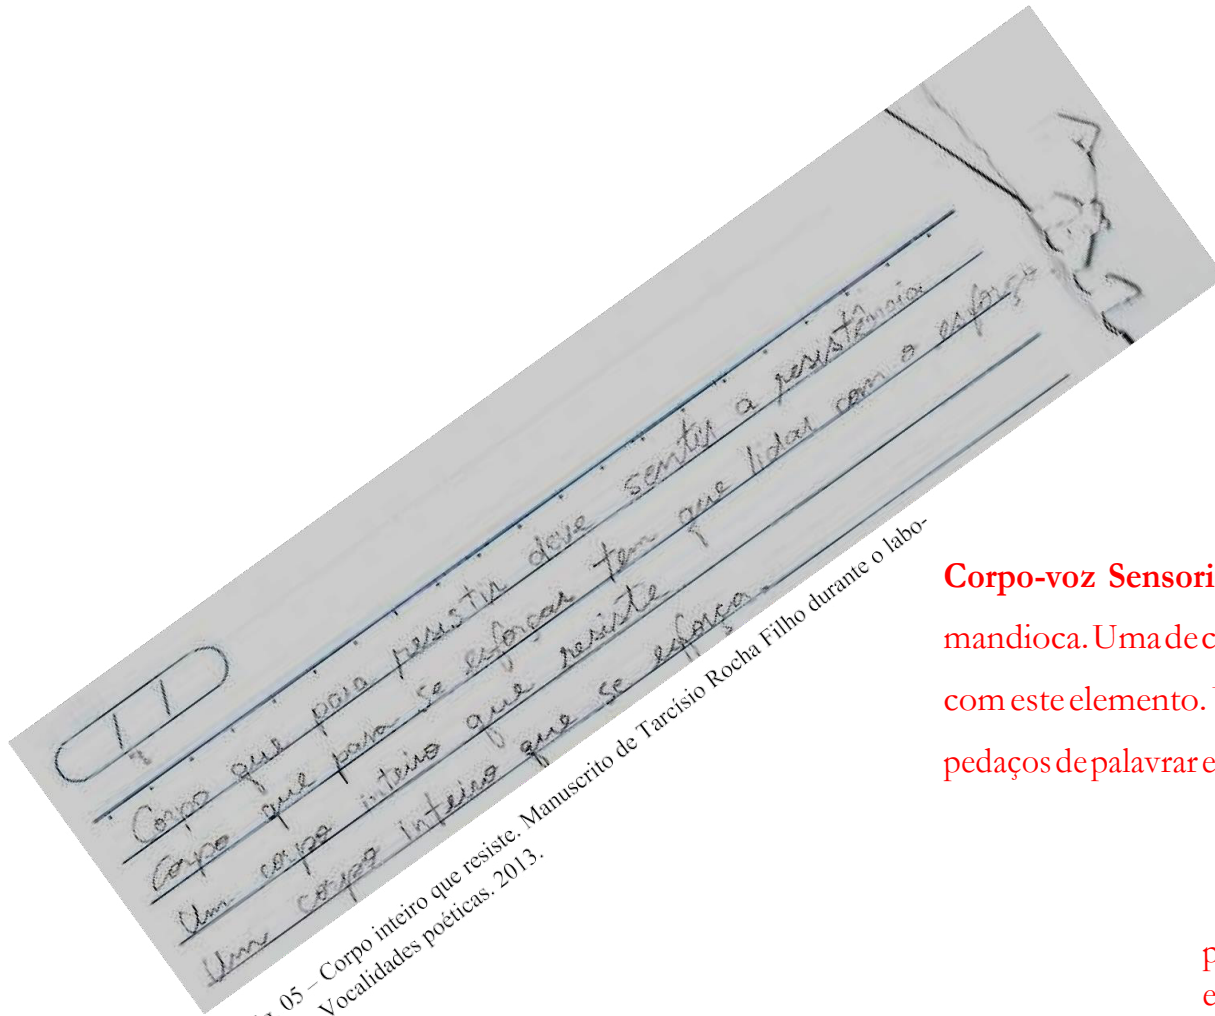 Corpo que para resistir deve sentir a resistência
Corpo que para se esforçar tem que lidar com o esforço
Um corpo inteiro que resiste
Um corpo inteiro que se esforça.
05 – Corpo inteiro que resiste. Manuscrito de Tarcísio Rocha Filho durante o labo-
Vocalidades poéticas. 2013.
Corpo-voz Sensori
mandioca. Uma de c
com este elemento.
pedaços de palavrar e
p
e